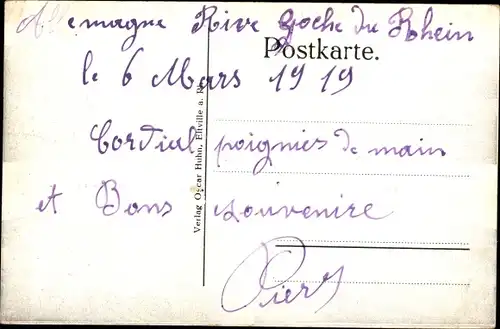 Allemagne Rive Goche du Rhein
Postkarte.
le 6 Mars 1919
Cordial poignies de main
et Bons souvenire
Pier
Verlag Oscar Huhn, Eltville a. Rh.